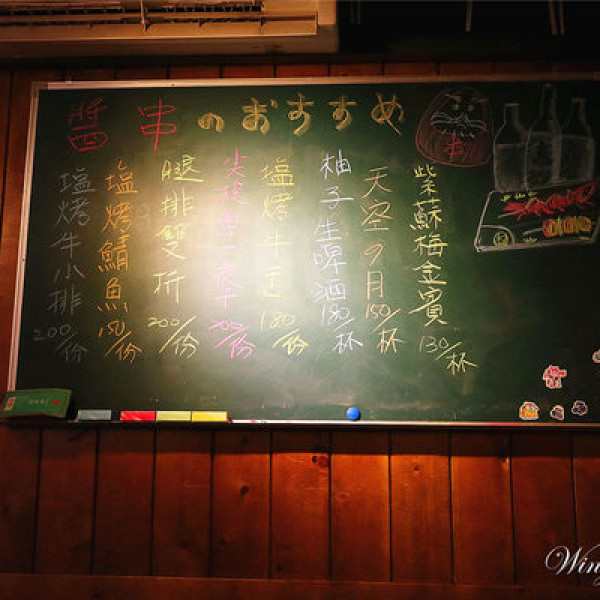 醬串のおすすめ
紫蘇梅金賓 130/杯
天空の月 150/杯
柚子生啤酒 180/杯
塩烤牛舌 180/份
200/份
腿排雙拼 200/份
塩烤鯖魚 150/份
塩烤牛小排 200/份
串
Wing